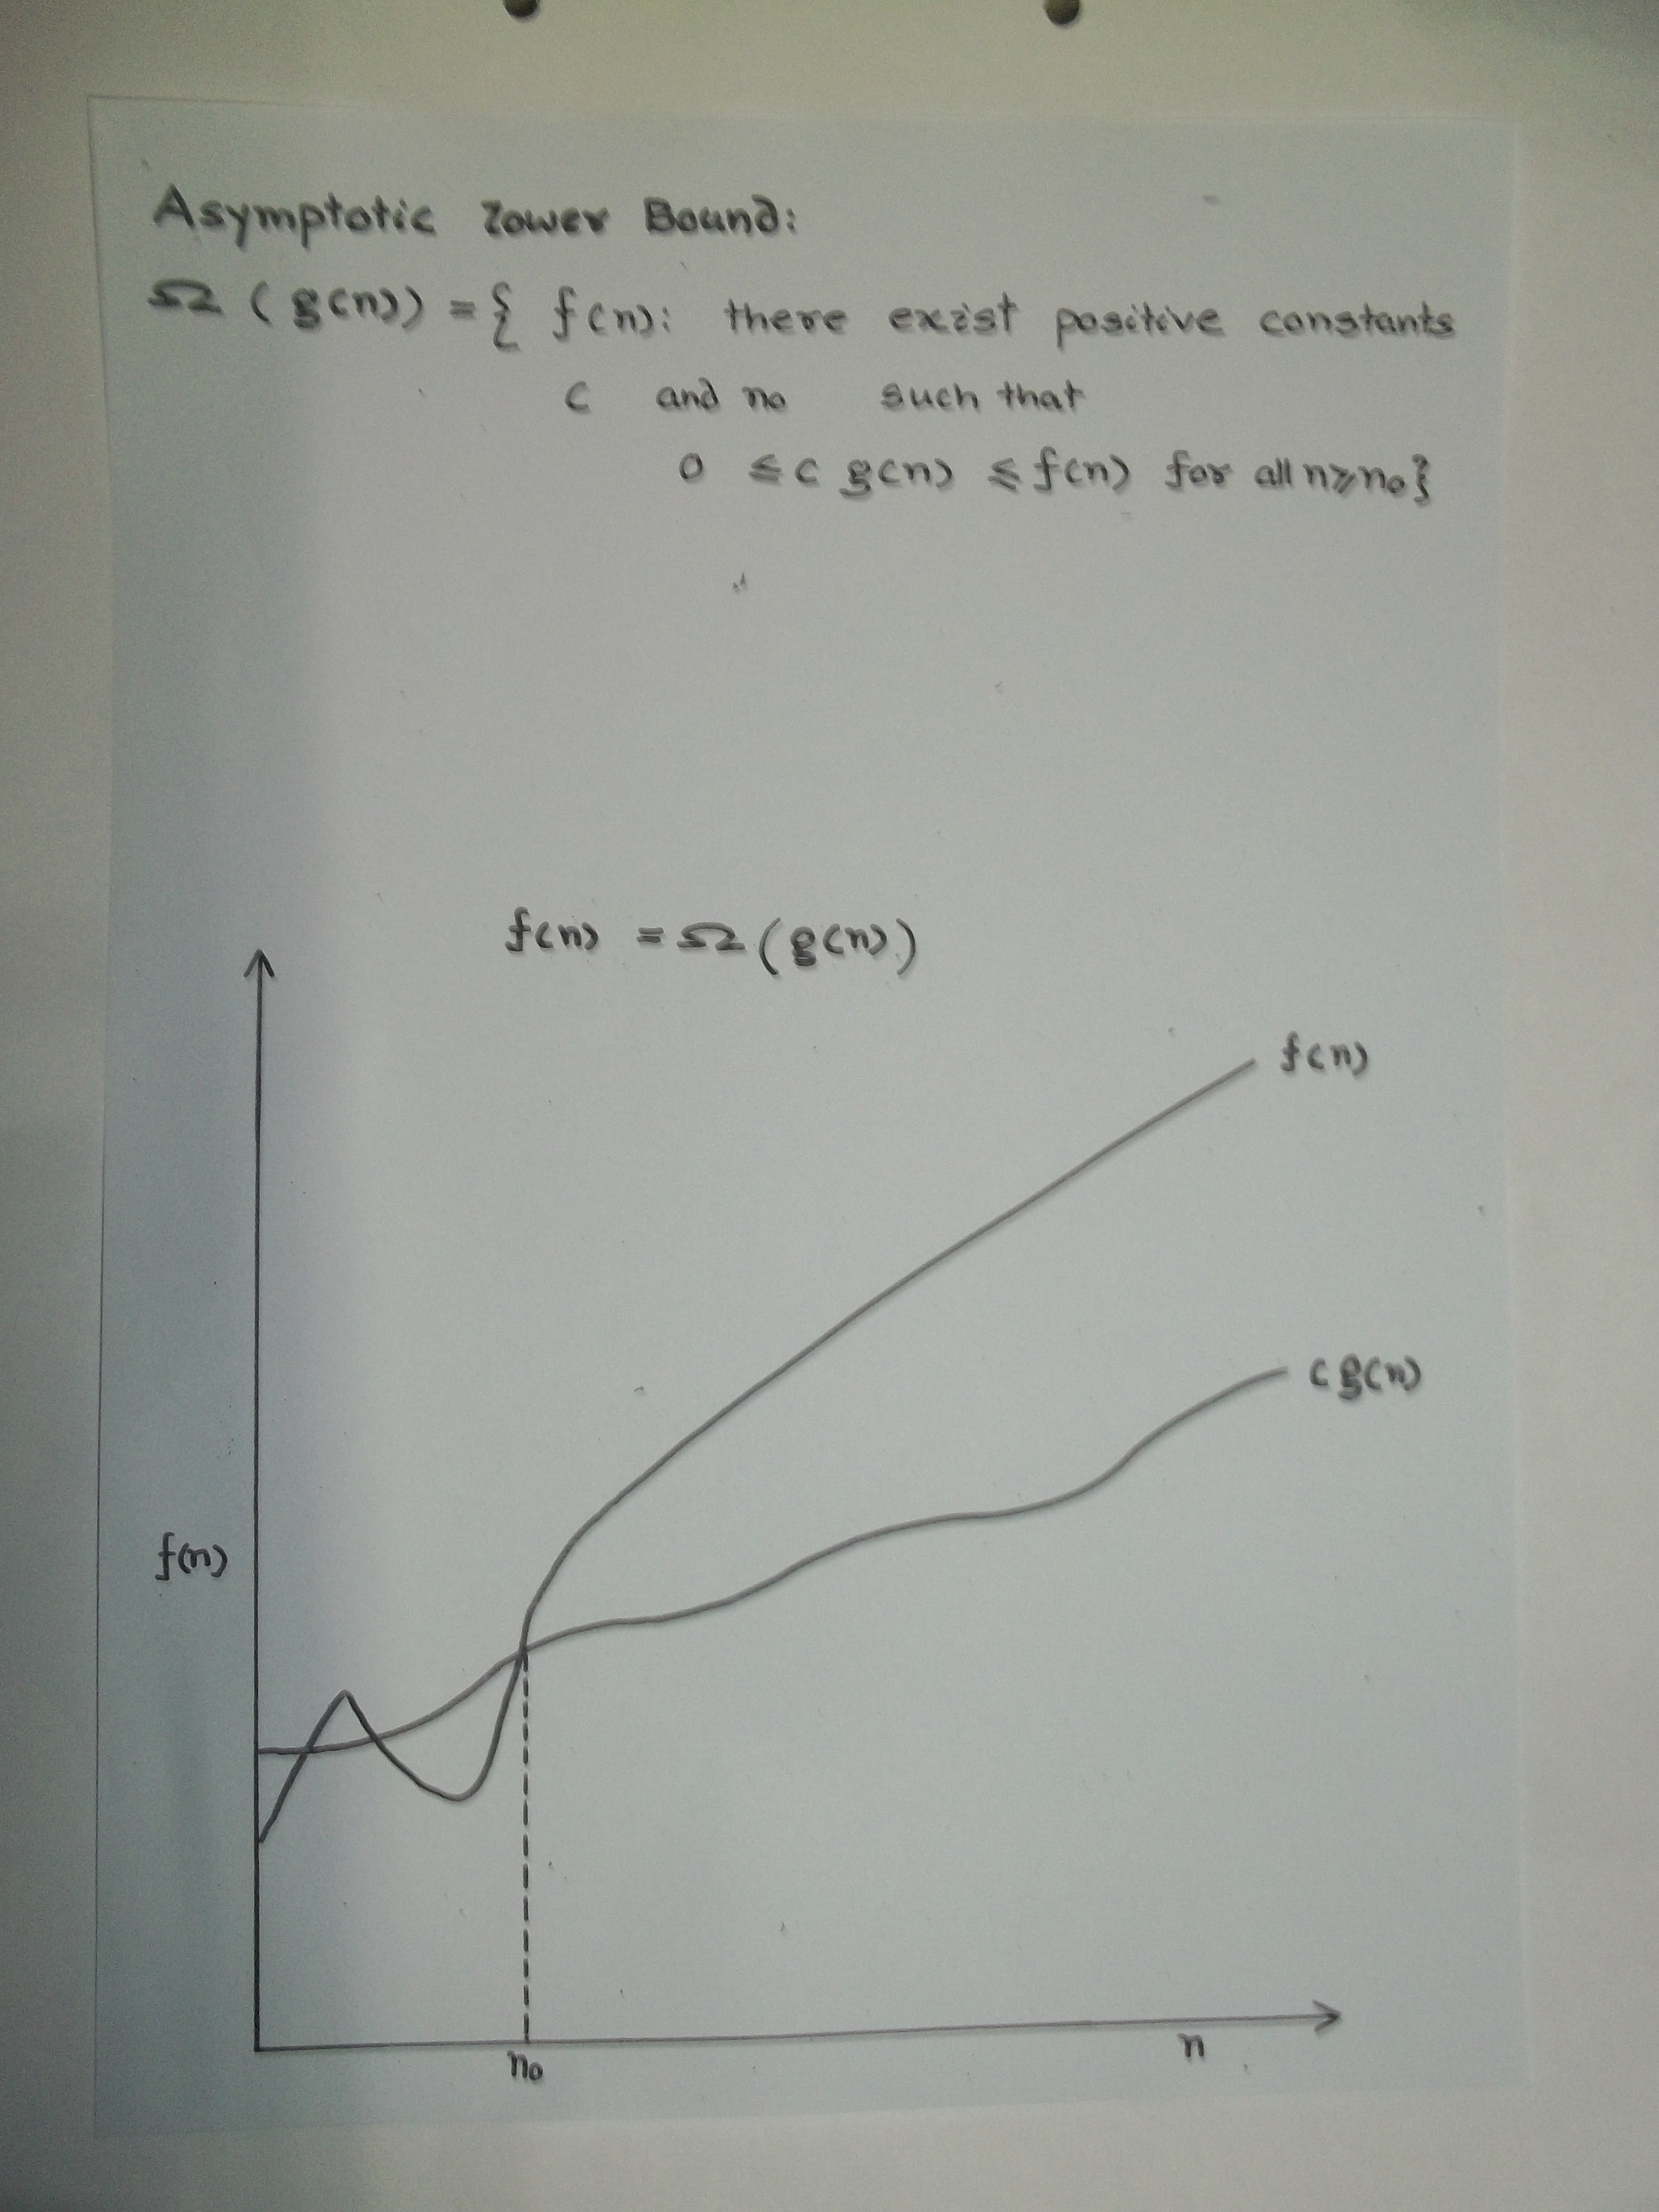 Asymptotic Lower Bound:
Ω (g(n)) = { f(n): there exist positive constants
c and n₀ such that
0 ≤ c g(n) ≤ f(n) for all n ≥ n₀}
f(n) = Ω (g(n))
f(n)
c g(n)
f(n)
n₀
n